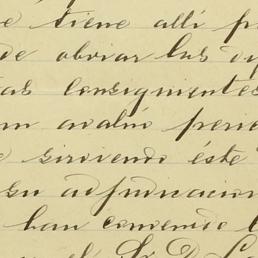 e tiene allí p
de obviar las di
tas consiguientes
un avalúo peri
e sirviendo éste
su adjudicacion
han convenido
el Sr. D.